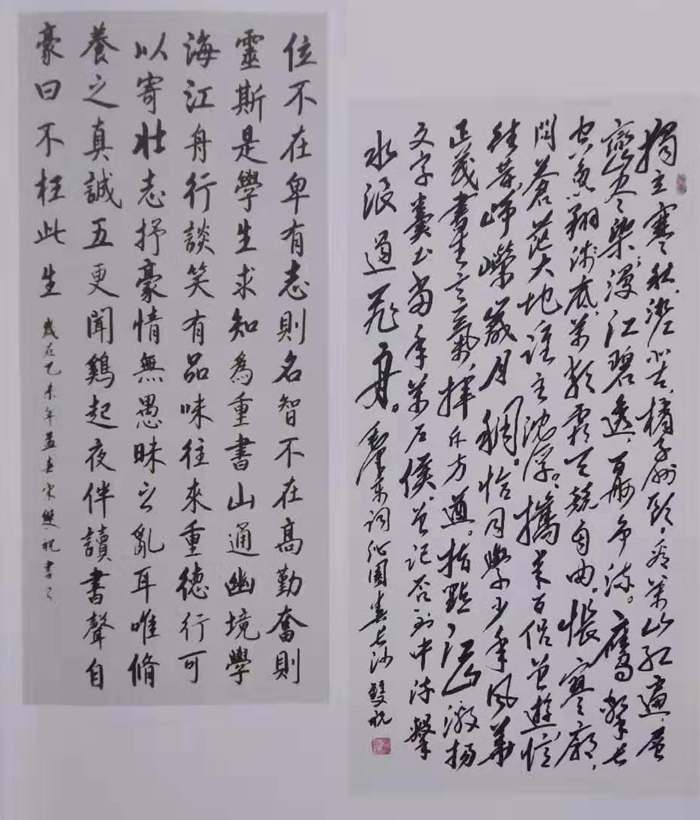 位不在卑有志則名智不在高勤奮則
靈斯是學生求知為重書山通幽境學
海江舟行談笑有品味往來重德行可
以寄壯志抒豪情無愚昧之亂耳唯脩
養之真誠五更聞鷄起夜伴讀書聲自
豪曰不枉此生 歲在乙未年孟春宋雙祝書之
獨立寒秋，湘江北去，橘子洲頭，看萬山紅遍，層
林盡染，漫江碧透，百舸爭流。鷹擊長
空，魚翔淺底，萬類霜天競自由。悵寥廓，
問蒼茫大地，誰主沉浮。攜來百侣曾遊，憶
往昔崢嶸歲月稠。恰同學少年，風華
正茂，書生意氣，揮斥方遒。指點江山，激揚
文字，糞土當年萬户侯。曾記否，到中流擊
水，浪遏飛舟。毛澤東詞沁園春長沙 雙祝